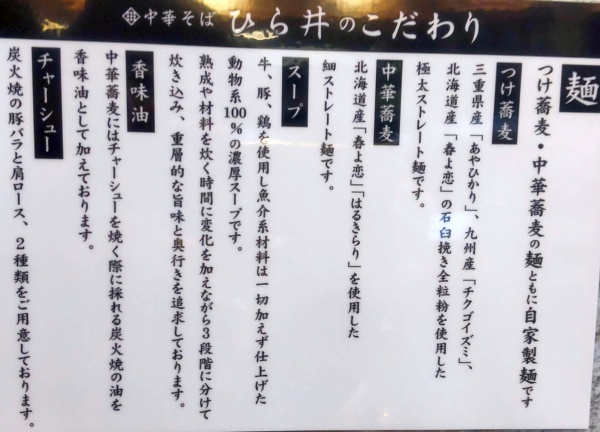 中華そば ひら井のこだわり
麺
つけ蕎麦・中華蕎麦の麺ともに自家製麺です
つけ蕎麦
三重県産「あやひかり」、九州産「チクゴイズミ」、
北海道産「春よ恋」の石臼挽き全粒粉を使用した
極太ストレート麺です。
中華蕎麦
北海道産「春よ恋」「はるきらり」を使用した
細ストレート麺です。
スープ
牛、豚、鶏を使用し魚介系材料は一切加えず仕上げた
動物系100%の濃厚スープです。
熟成や材料を炊く時間に変化を加えながら3段階に分けて
炊き込み、重層的な旨味と奥行きを追求しております。
香味油
中華蕎麦にはチャーシューを焼く際に採れる炭火焼の油を
香味油として加えております。
チャーシュー
炭火焼の豚バラと肩ロース、2種類をご用意しております。